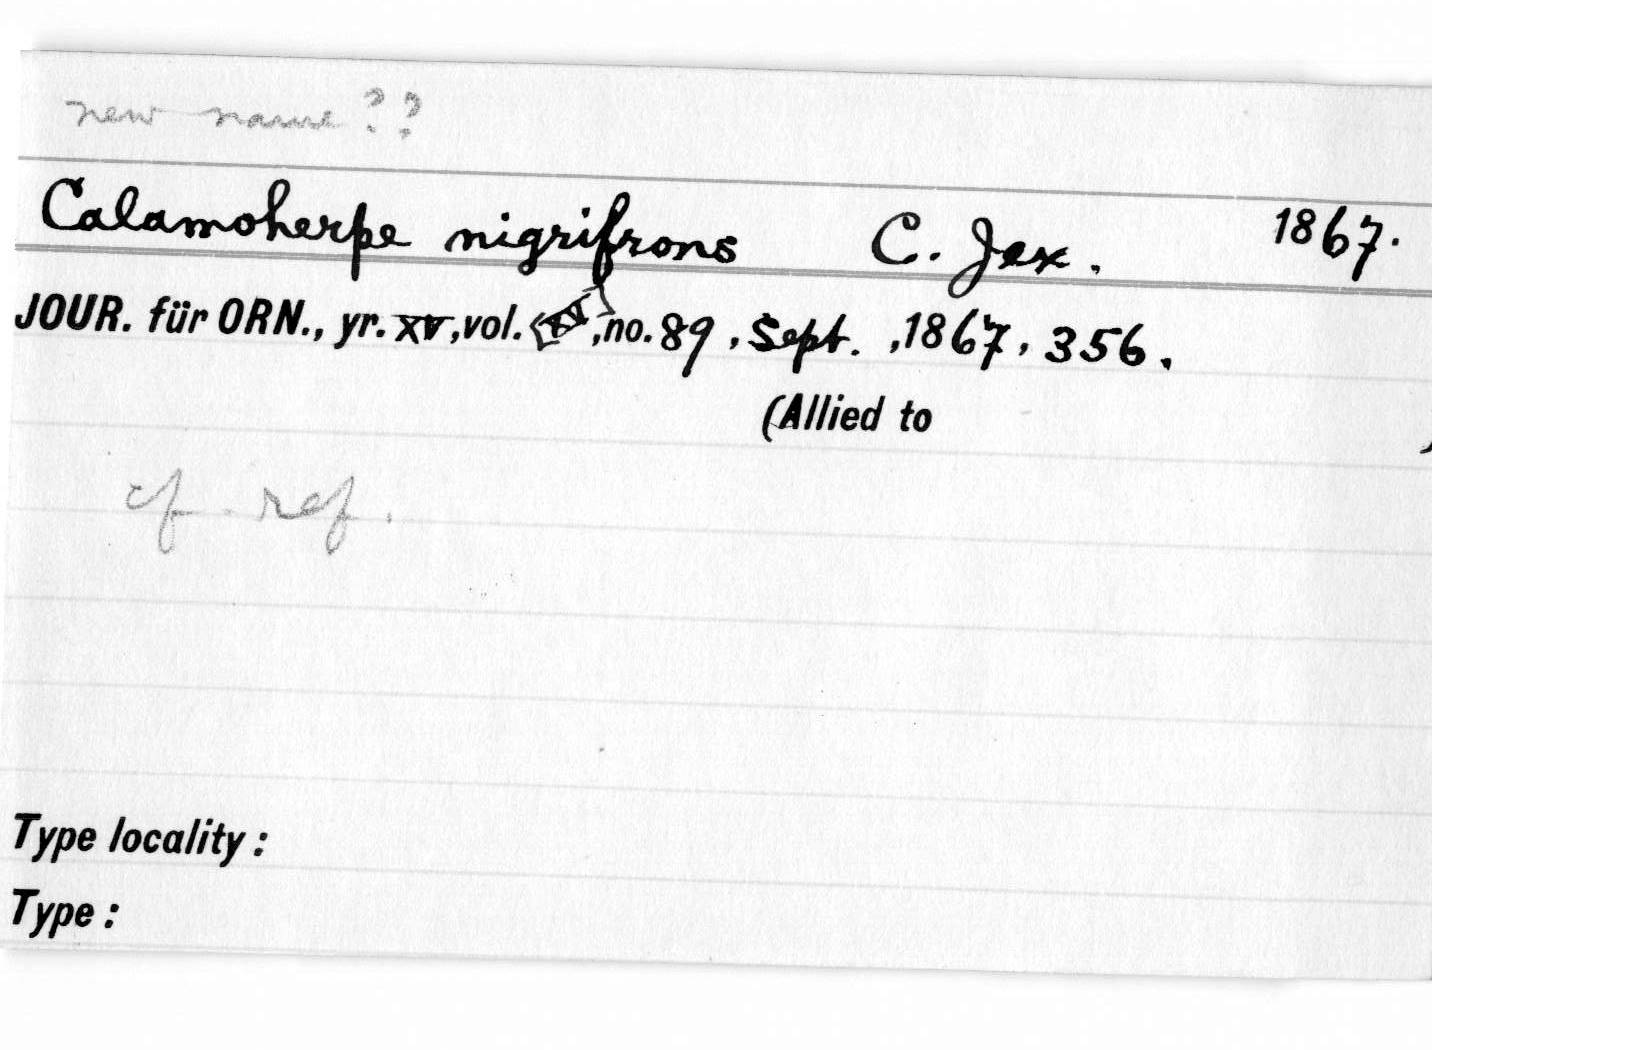 new name??
Calamoherpe nigrifrons C. Jex. 1867.
JOUR. für ORN., yr. XV, vol. [XV], no. 89, Sept. , 1867, 356.
(Allied to )
cf. ref.
Type locality :
Type :